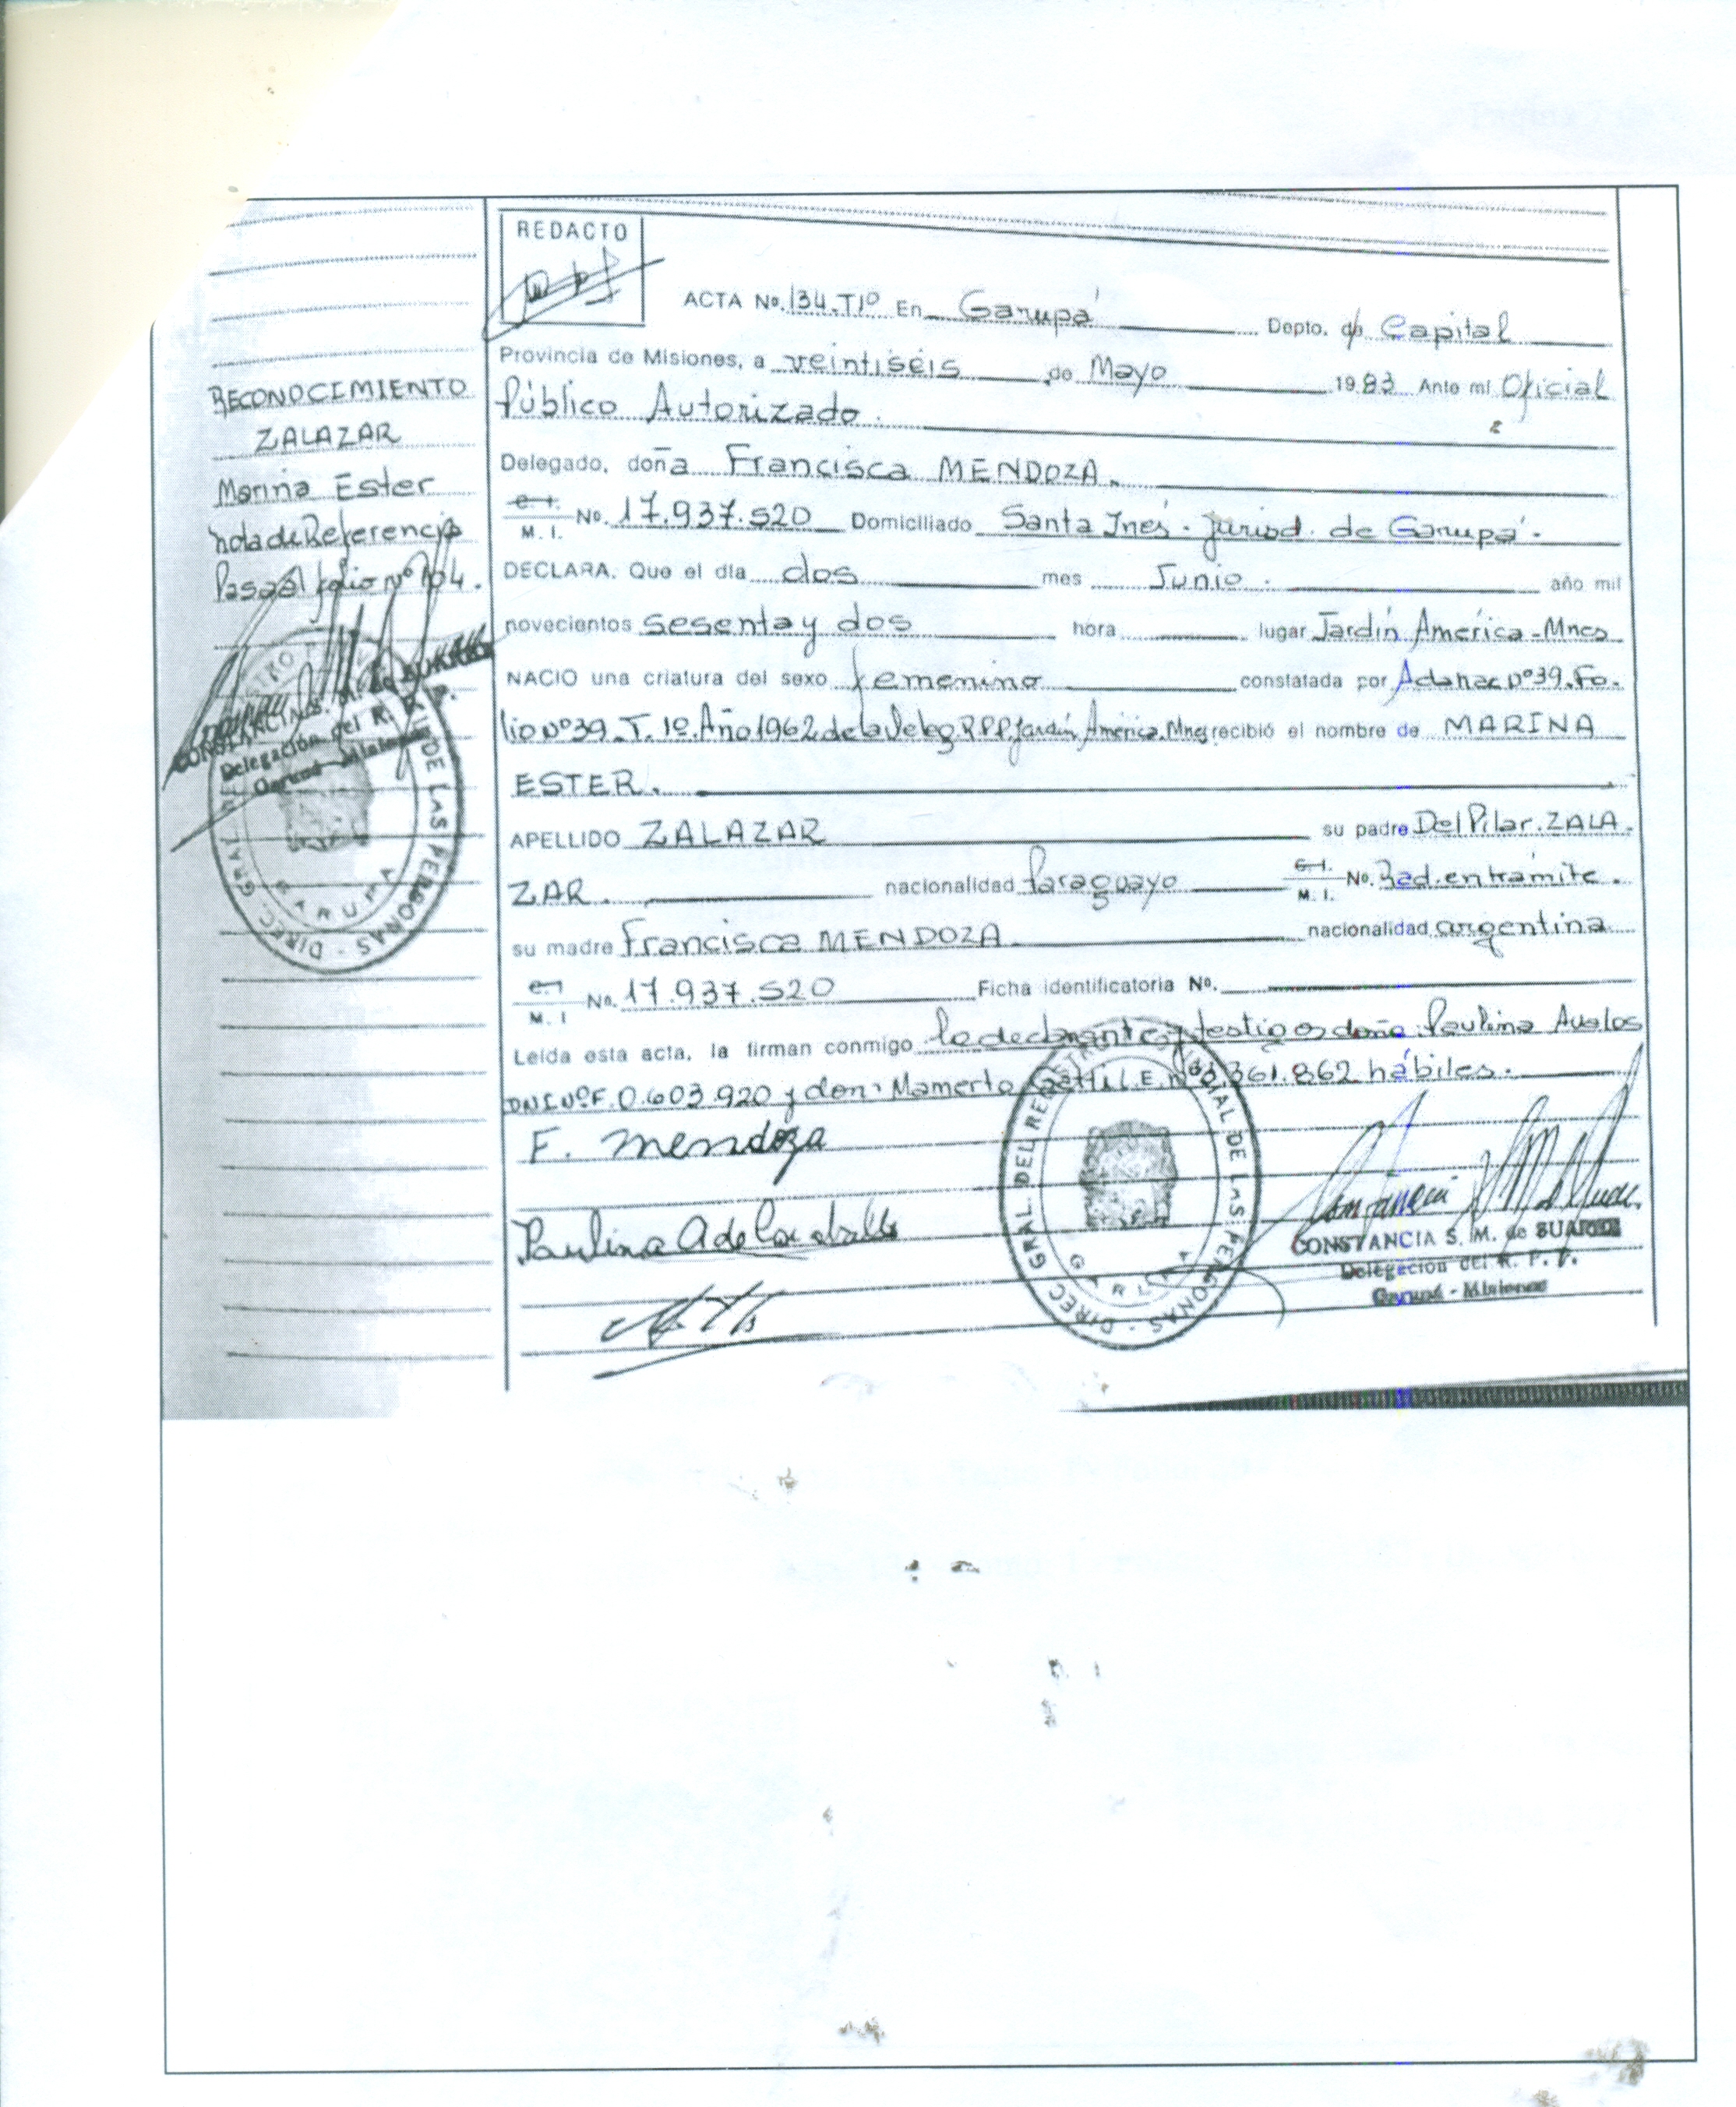 RECONOCIMIENTO
ZALAZAR
Marina Ester
nota de Referencia
Pasa al folio nº 104.
REDACTO
ACTA No. 134.Tº1º En Garupá Depto. de Capital
Provincia de Misiones, a veintiséis de Mayo 1983 Ante mí Oficial
Público Autorizado.
Delegado, doña Francisca MENDOZA.
M. I. No. 17.937.520 Domiciliado Santa Inés - Jurisd. de Garupá.
DECLARA. Que el día dos mes Junio. año mil
novecientos sesenta y dos hora lugar Jardín América - Mnes
NACIO una criatura del sexo femenino constatada por Acta nac nº 39. Fo.
lio Nº 39. T. 1º. Año 1962. de la Deleg. R.P.P. Jardín América. Mnes recibió el nombre de MARINA
ESTER.
APELLIDO ZALAZAR su padre Del Pilar. ZALA.
ZAR. nacionalidad Paraguayo M. I. No. Rad. en trámite.
su madre Francisca MENDOZA. nacionalidad argentina
M. I No. 17.937.520 Ficha identificatoria No.
Leída esta acta, la firman conmigo la declarante y testigos doña: Paulina Avalos
DNI Nº F. 0.603.920 y don: Mamerto Gatti L.E. nº 361.862 hábiles.
F. Mendoza
Paulina
DIREC GRAL DEL REGISTRO DE LAS PERSONAS
GARUPA
CONSTANCIA S. M. de SUAREZ
Delegación del R. P. P.
Garupá - Misiones